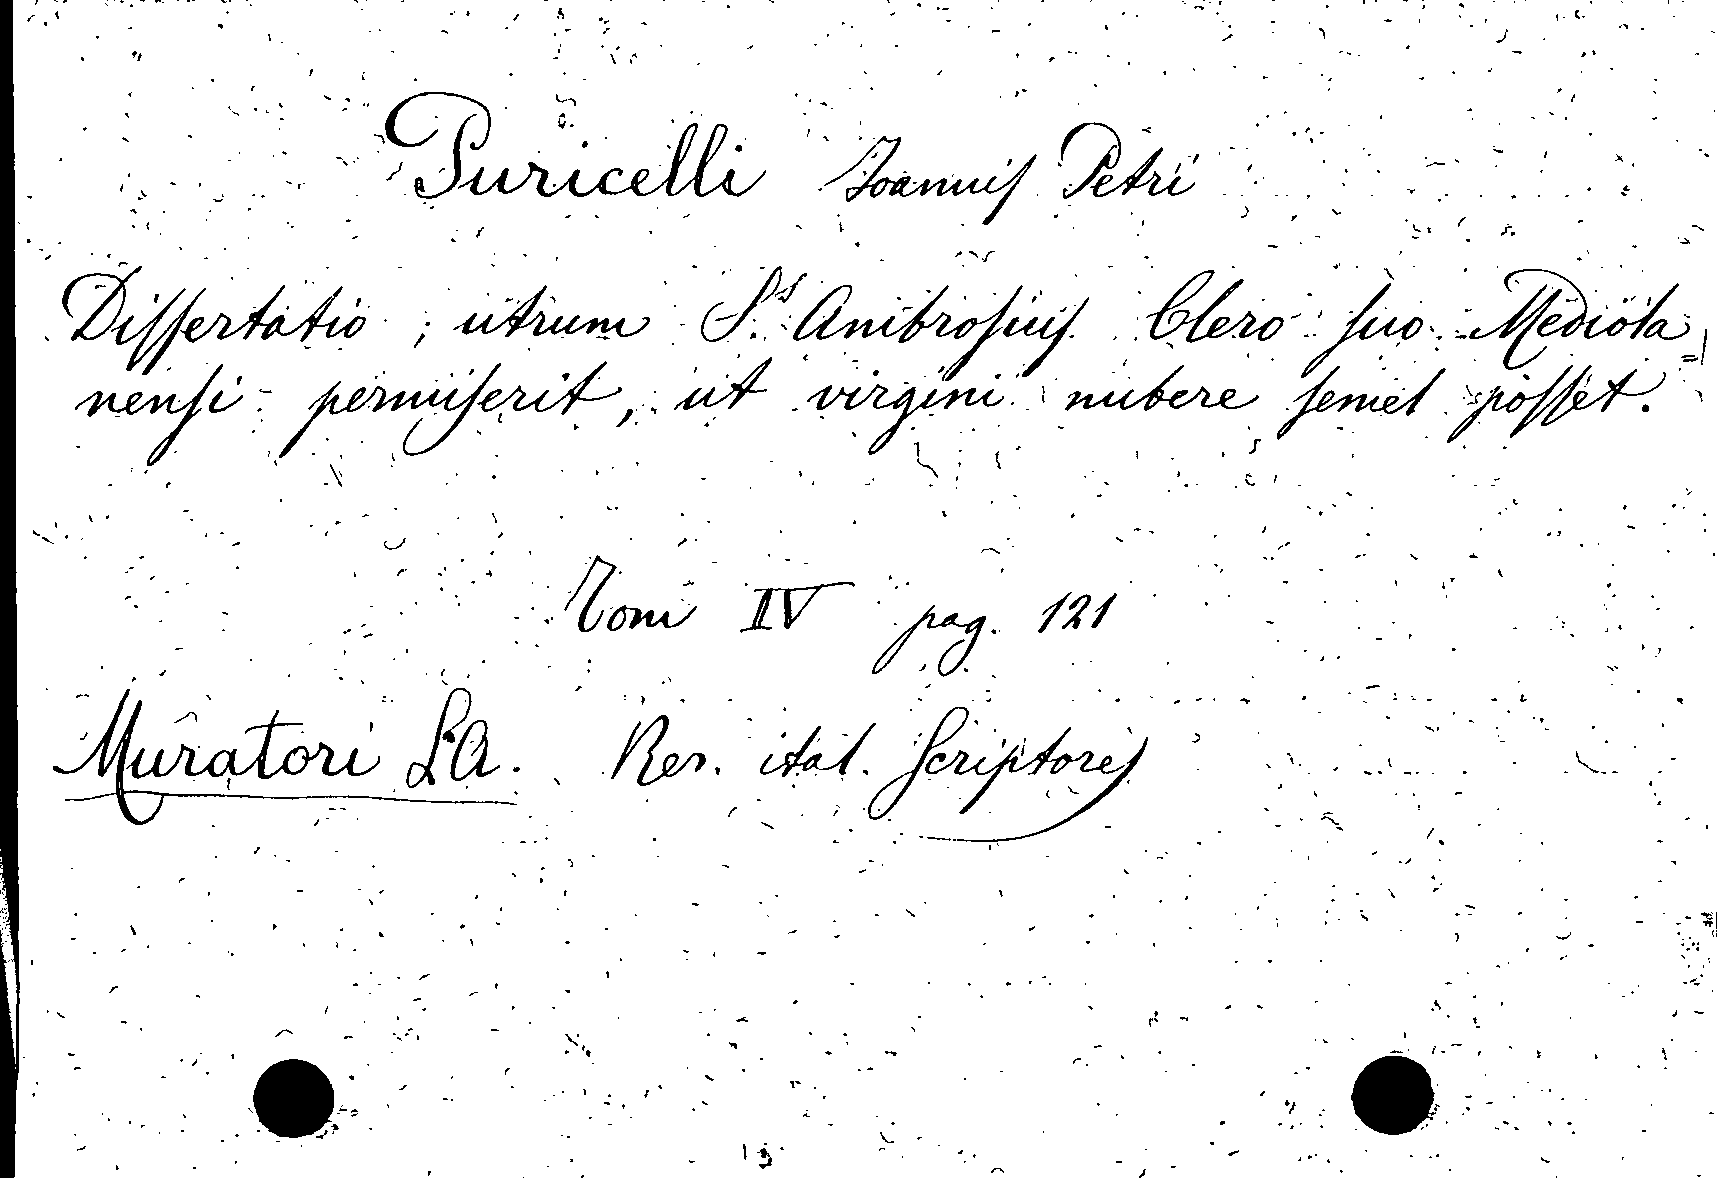 Puricelli Joannis Petri
Dissertatio, utrum S.s Ambrosius Clero suo Mediola=
nensi permiserit, ut virgini nubere semel posset.
Tom IV pag. 121
Muratori LA. Rer. ital. Scriptores